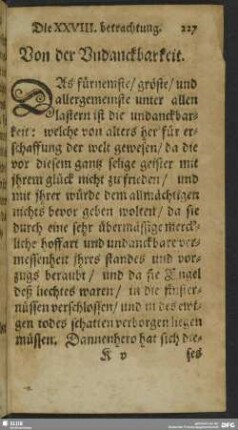 Die XXVIII. betrachtung. 227
Von der Vndanckbarkeit.
DAs fürnemste/ gröste/ und
allergemeinste unter allen
lastern ist die undanckbar-
keit: welche von alters her für er-
schaffung der welt gewesen/ da die
vor diesem gantz selige geister mit
ihrem glück nicht zu frieden/ und
mit ihrer würde dem allmächtigen
nichts bevor geben wolten/ da sie
durch eine sehr übermässige merck-
liche hoffart und undanckbare ver-
messenheit ihres standes und vor-
zugs beraubt/ und da sie Engel
deß liechtes waren/ in die finster-
nüssen verschlossen/ und in des ewi-
gen todes schatten verborgen liegen
müssen. Dannenhero hat sich die-
K v ses
SLUB
DFG